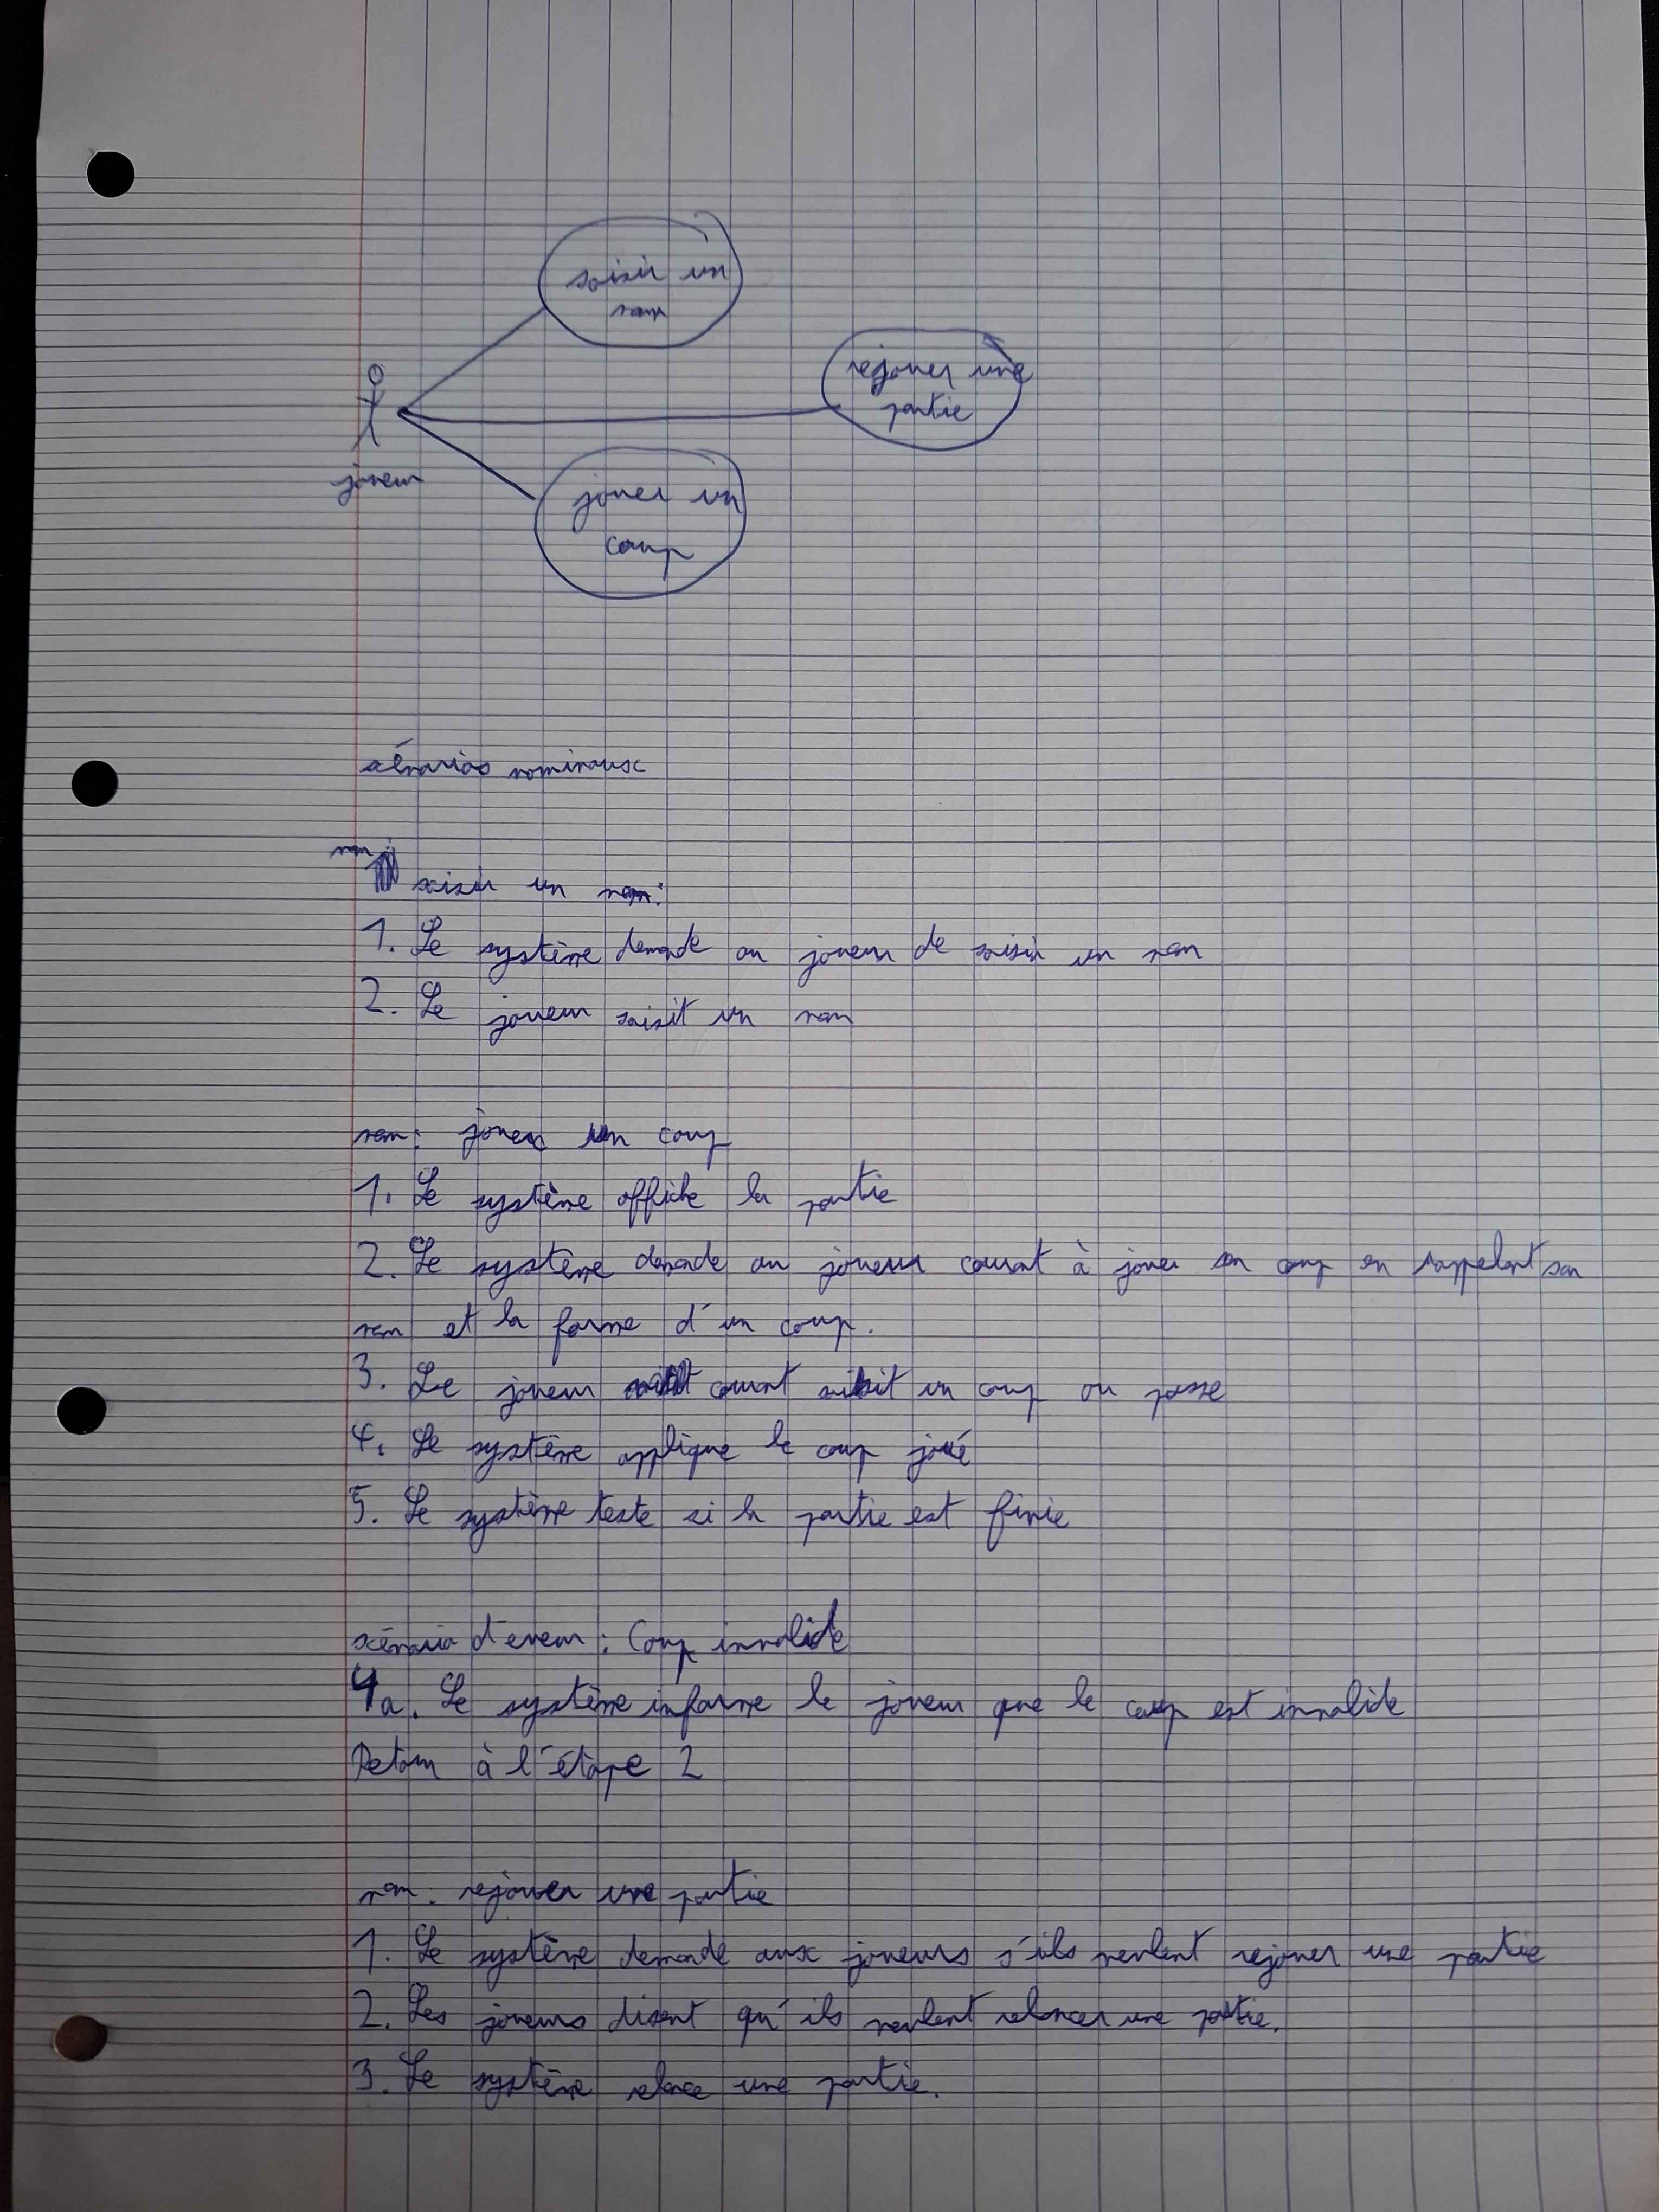 saisir un
nom
rejouer une
partie
joueur
jouer un
coup
scénarios nominaux
nom :
saisir un nom :
1. Le système demande au joueur de saisir un nom
2. Le joueur saisit un nom
nom : jouer un coup
1. Le système affiche la partie
2. Le système demande au joueur courant à jouer son coup en rappelant son
nom et la forme d'un coup.
3. Le joueur courant saisit un coup ou passe
4. Le système applique le coup joué
5. Le système teste si la partie est finie
scénario d'erreur : Coup invalide
4a. Le système informe le joueur que le coup est invalide
Retour à l'étape 2
nom : rejouer une partie
1. Le système demande aux joueurs s'ils veulent rejouer une partie
2. Les joueurs disent qu'ils veulent relancer une partie.
3. Le système relance une partie.